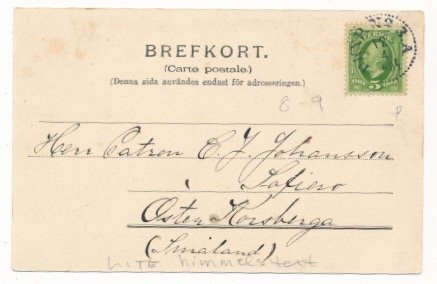 BREFKORT.
(Carte postale.)
(Denna sida användes endast för adresseringen.)
SVERIGE
5
8-9
Herr Patron C J Johansson
i
Sofiero
Östen Korsberga
(Småland)
LITE himmelstext